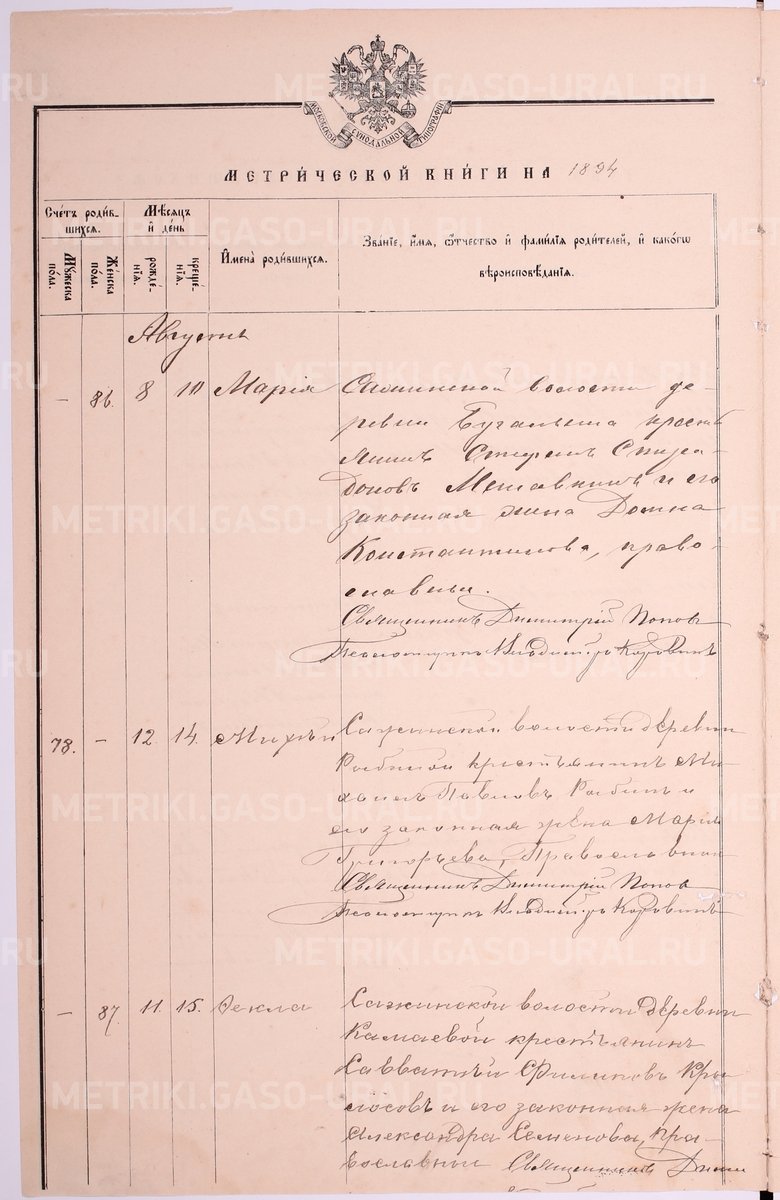 МОСКОВСКОЙ СѴНОДАЛЬНОЙ ТИПОГРАФІИ
МЕТРИ́ЧЕСКОЙ КНИ́ГИ НА 1894
Сче́тъ роди́в-
шихся.
Мꙋ́жеска
пола.
Же́нска
пола.
Мѣ́сяцъ
и҆ де́нь
рожде́-
нїя.
креще́-
нїя.
И҆мена̀ роди́вшихся.
Зва́нїе, и҆́мя, ѻ҆́тчество и҆ фами́лїя роди́телей, и҆ како́гѡ
вѣроисповѣ́данїя.
Августъ
– 86. 8 10 Марія
волости де-
ревни Бугалыша кресть
янинъ Стефанъ Спири-
доновъ и его
законная жена Домна
Константинова, право-
славные.
Священникъ Димитрій Поповъ
Псаломщикъ Владимиръ Коровинъ
78. – 12. 14. Михѣй
Сажинской волости деревни
крестьянинъ Ми-
хаилъ Павловъ и
его законная жена Марія
Григорьева, Православные
Священникъ Димитрій Поповъ
Псаломщикъ Владимиръ Коровинъ
– 87. 11. 15. Ѳекла
Сажинской волости деревни
Камаевой крестьянинъ
Савватѣй Филиповъ Кры
лосовъ и его законная жена
Александра Семенова, пра-
вославные Священникъ Дими
METRIKI.GASO-URAL.RU